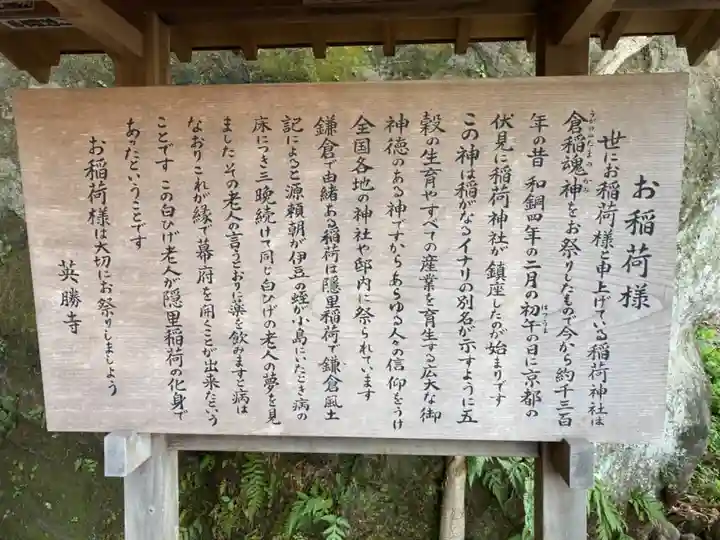 お稲荷様
世にお稲荷様と申上げている稲荷神社は
倉稲魂神をお祭りしたもので今から約千三百
うがのみたまのかみ
年の昔 和銅四年の二月の初午の日に京都の
はつうま
伏見に稲荷神社が鎮座したのが始まりです
この神は稲がなるイナリの別名が示すように五
穀の生育やすべての産業を育生する広大な御
神徳のある神ですからあらゆる人々の信仰をうけ
全国各地の神社や邸内に祭られています
鎌倉で由緒ある稲荷は隠里稲荷で鎌倉風土
記によると源頼朝が伊豆の蛭が小島にいたとき病の
床につき三晩続けて同じ白ひげの老人の夢を見
ましたその老人の言うとおりに薬を飲みますと病は
なおりこれが縁で幕府を開くことが出来たという
ことです この白ひげ老人が隠里稲荷の化身で
あったということです
お稲荷様は大切にお祭りしましよう
英勝寺